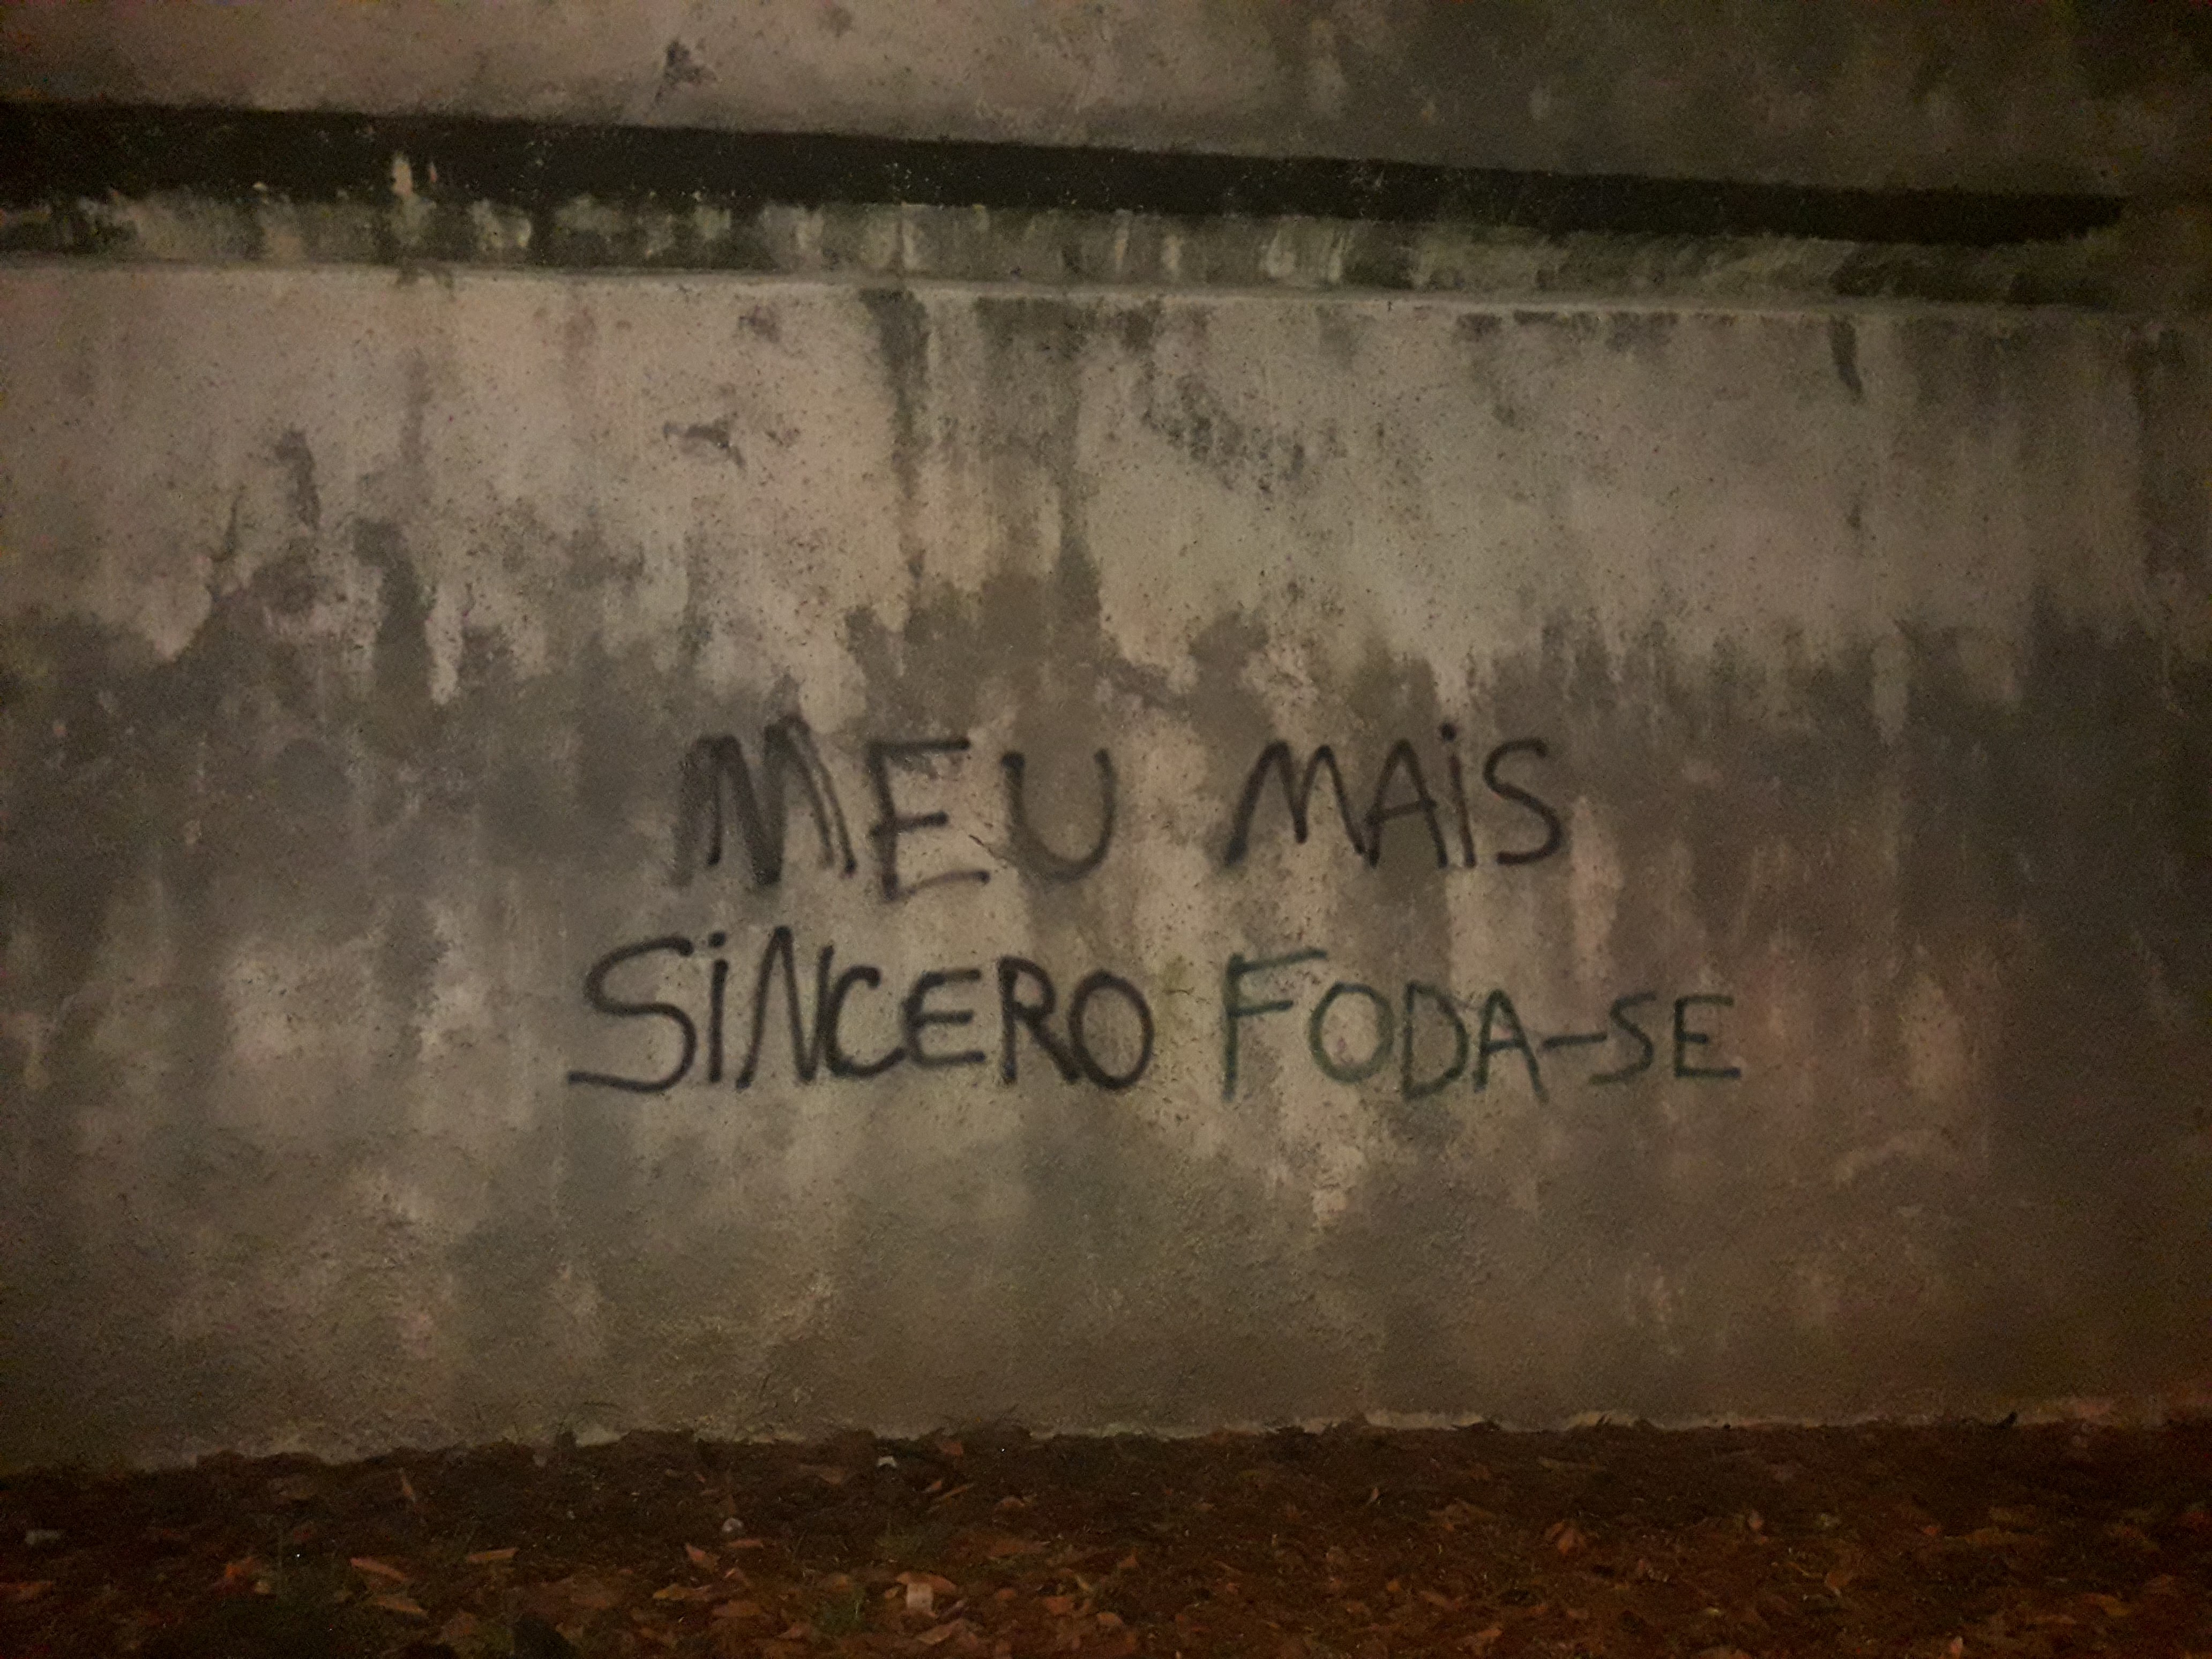 MEU MAiS
SiNCERO FODA-SE